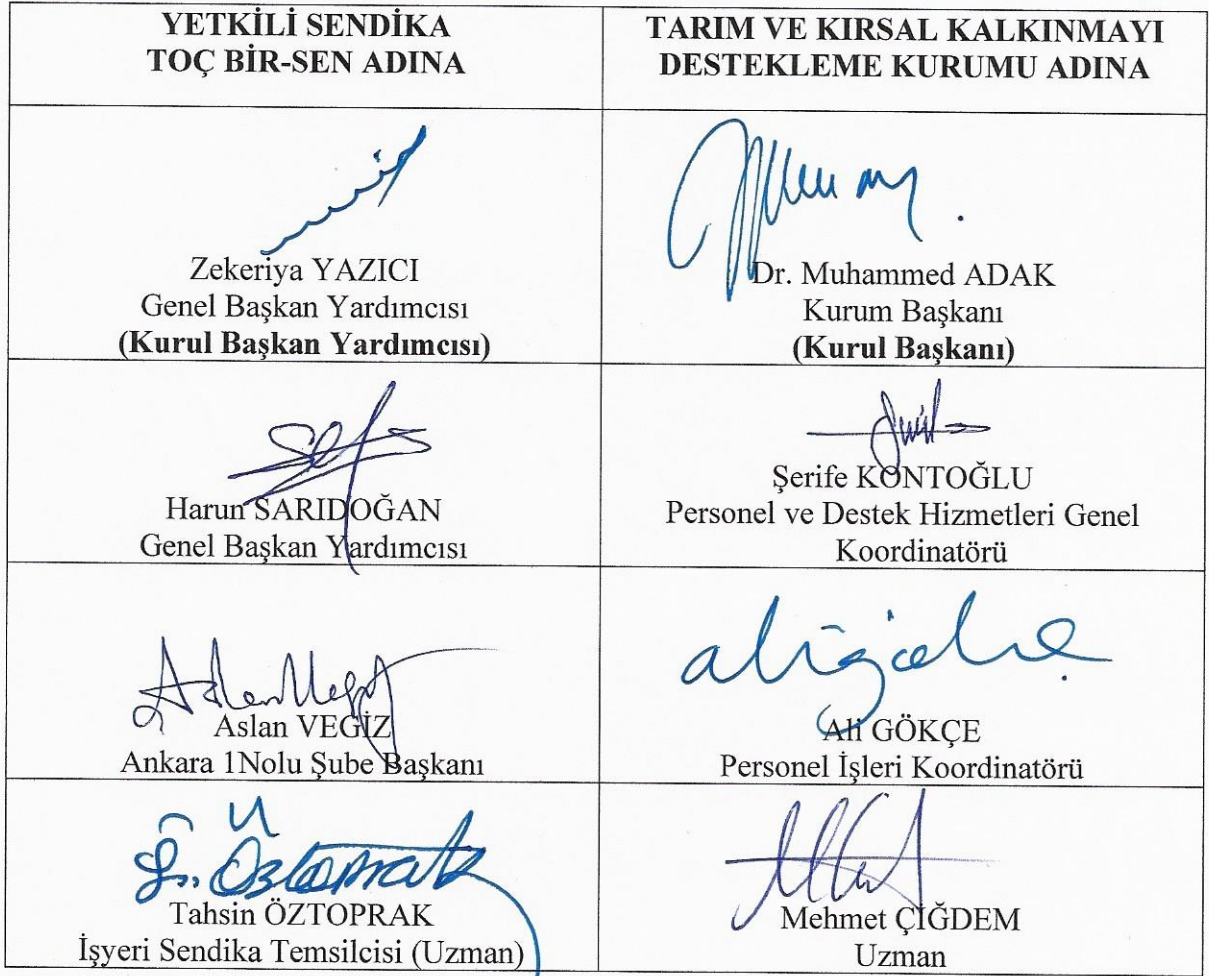 YETKİLİ SENDİKA
TOÇ BİR-SEN ADINA
TARIM VE KIRSAL KALKINMAYI
DESTEKLEME KURUMU ADINA
Zekeriya YAZICI
Genel Başkan Yardımcısı
(Kurul Başkan Yardımcısı)
Dr. Muhammed ADAK
Kurum Başkanı
(Kurul Başkanı)
Harun SARIDOĞAN
Genel Başkan Yardımcısı
Şerife KONTOĞLU
Personel ve Destek Hizmetleri Genel
Koordinatörü
Aslan VEGİZ
Ankara 1Nolu Şube Başkanı
Ali GÖKÇE
Personel İşleri Koordinatörü
Tahsin ÖZTOPRAK
İşyeri Sendika Temsilcisi (Uzman)
Mehmet ÇİĞDEM
Uzman